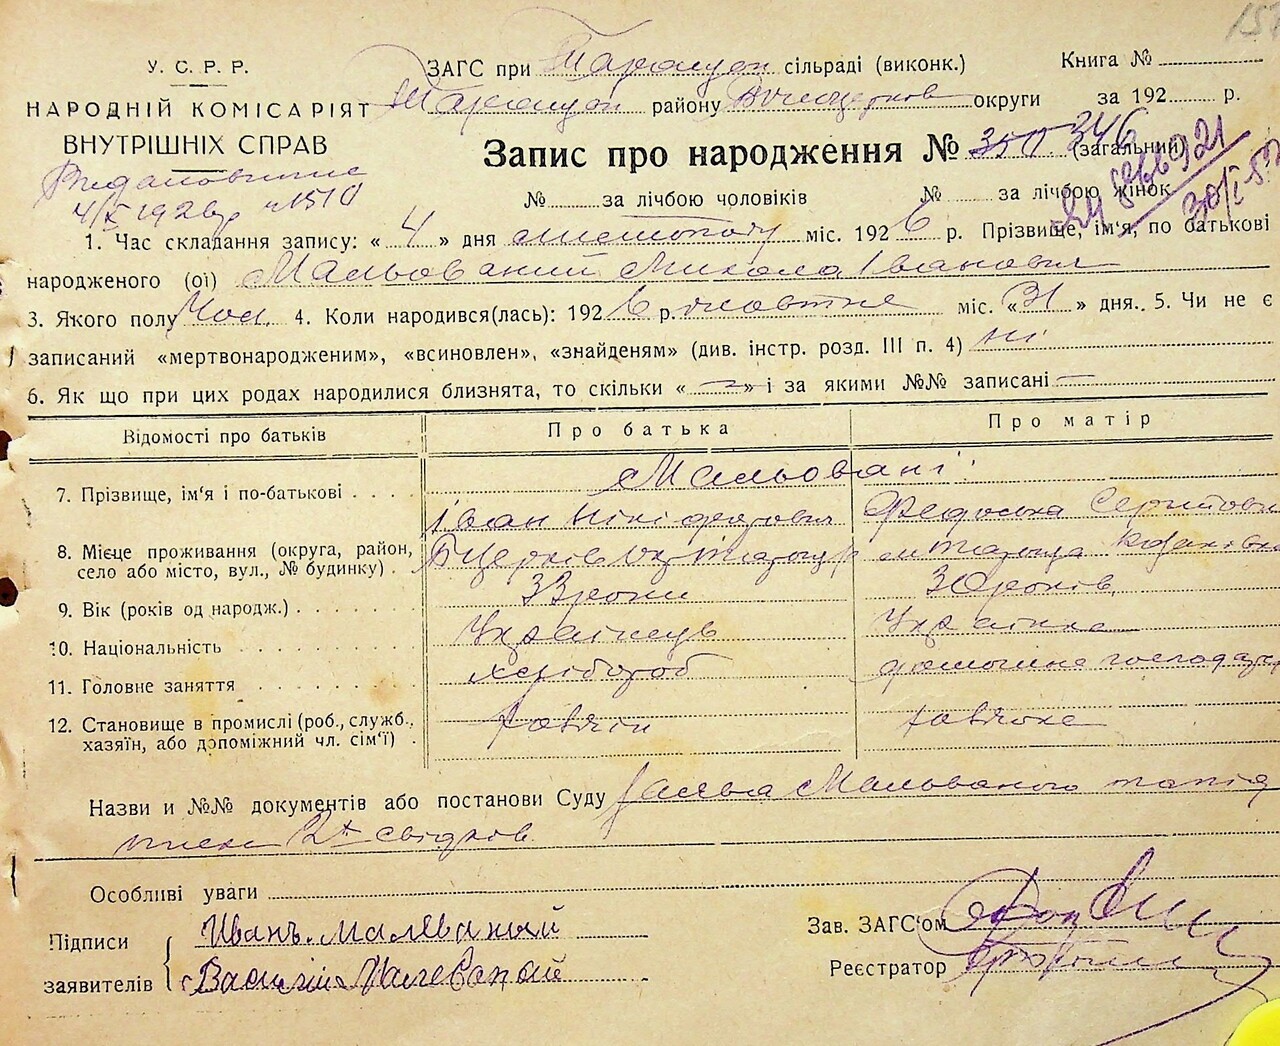 У. С. Р. Р.
НАРОДНІЙ КОМІСАРІЯТ
ВНУТРІШНІХ СПРАВ
4/XI 1926 р ч 1510
ЗАГС при сільраді (виконк.)
району округи
Книга №
за 192 р.
Запис про народження № 350 346 (загальний)
30/I-5
№ за лічбою чоловіків № за лічбою жінок
1. Час складання запису: « 4 » дня листопаду міс. 1926 р. Прізвище, ім'я, по батькові
народженого (ої) Мальований Микола Іванович
3. Якого полу Чол. 4. Коли народився(лась): 1926 р. жовтня міс. « 31 » дня. 5. Чи не є
записаний «мертвонародженим», «всиновлен», «знайденям» (див. інстр. розд. III п. 4) ні
6. Як що при цих родах народилися близнята, то скільки « — » і за якими №№ записані —
Відомості про батьків Про батька Про матір
7. Прізвище, ім'я і по-батькові Мальовані:
Іван Нікіфорович Федоська
8. Місце проживання (округа, район,
село або місто, вул., № будинку)
9. Вік (років од народж.) 33 роки 30 років
10. Національність Українець Українка
11. Головне заняття хлібороб домашнє
12. Становище в промислі (роб., служб.,
хазяїн, або допоміжний чл. сім'ї)
Назви и №№ документів або постанови Суду Заява Мальованого та під
писи 2х свідків
Особливі уваги
Підписи
заявителів
Иванъ Малеваный
Василий Малеваный
Зав. ЗАГС'ом
Реєстратор